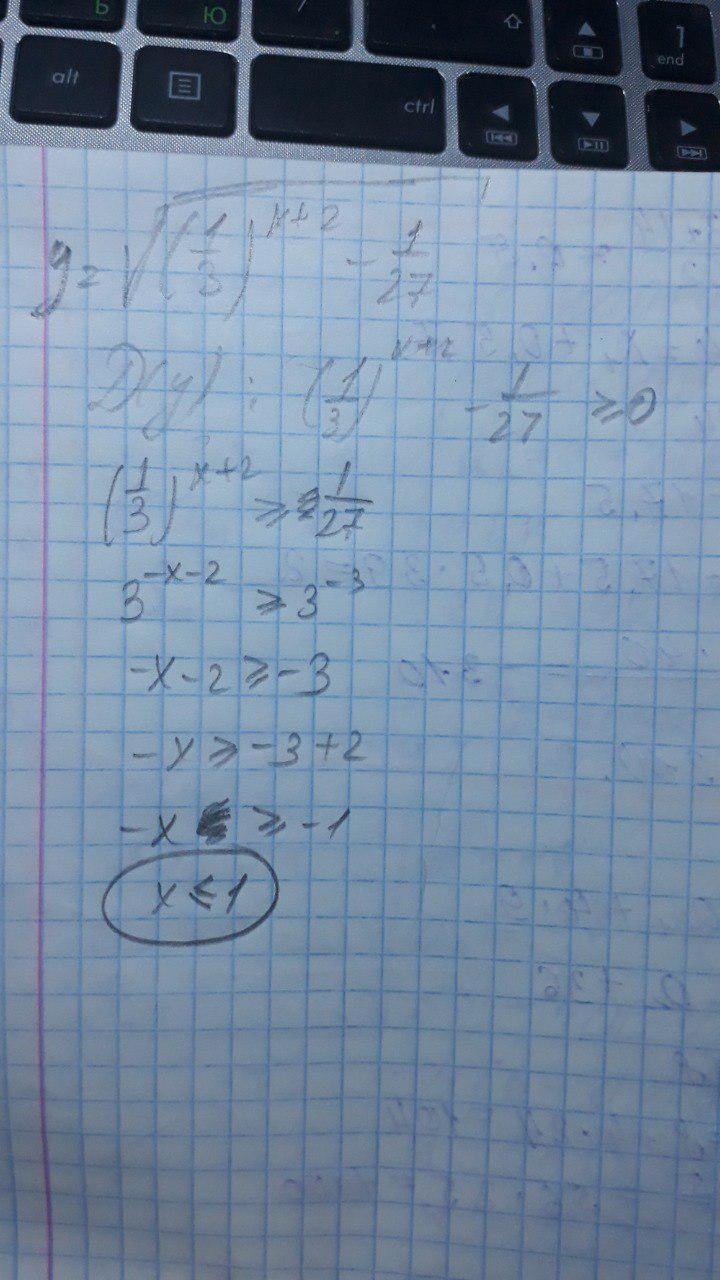 Ь Ю
alt ctrl end
y = √((1/3)^(x+2) - 1/27)
D(y) : (1/3)^(x+2) - 1/27 ≥ 0
(1/3)^(x+2) ≥ 1/27
3^(-x-2) ≥ 3^(-3)
-x-2 ≥ -3
-x ≥ -3+2
-x ≥ -1
x ≤ 1